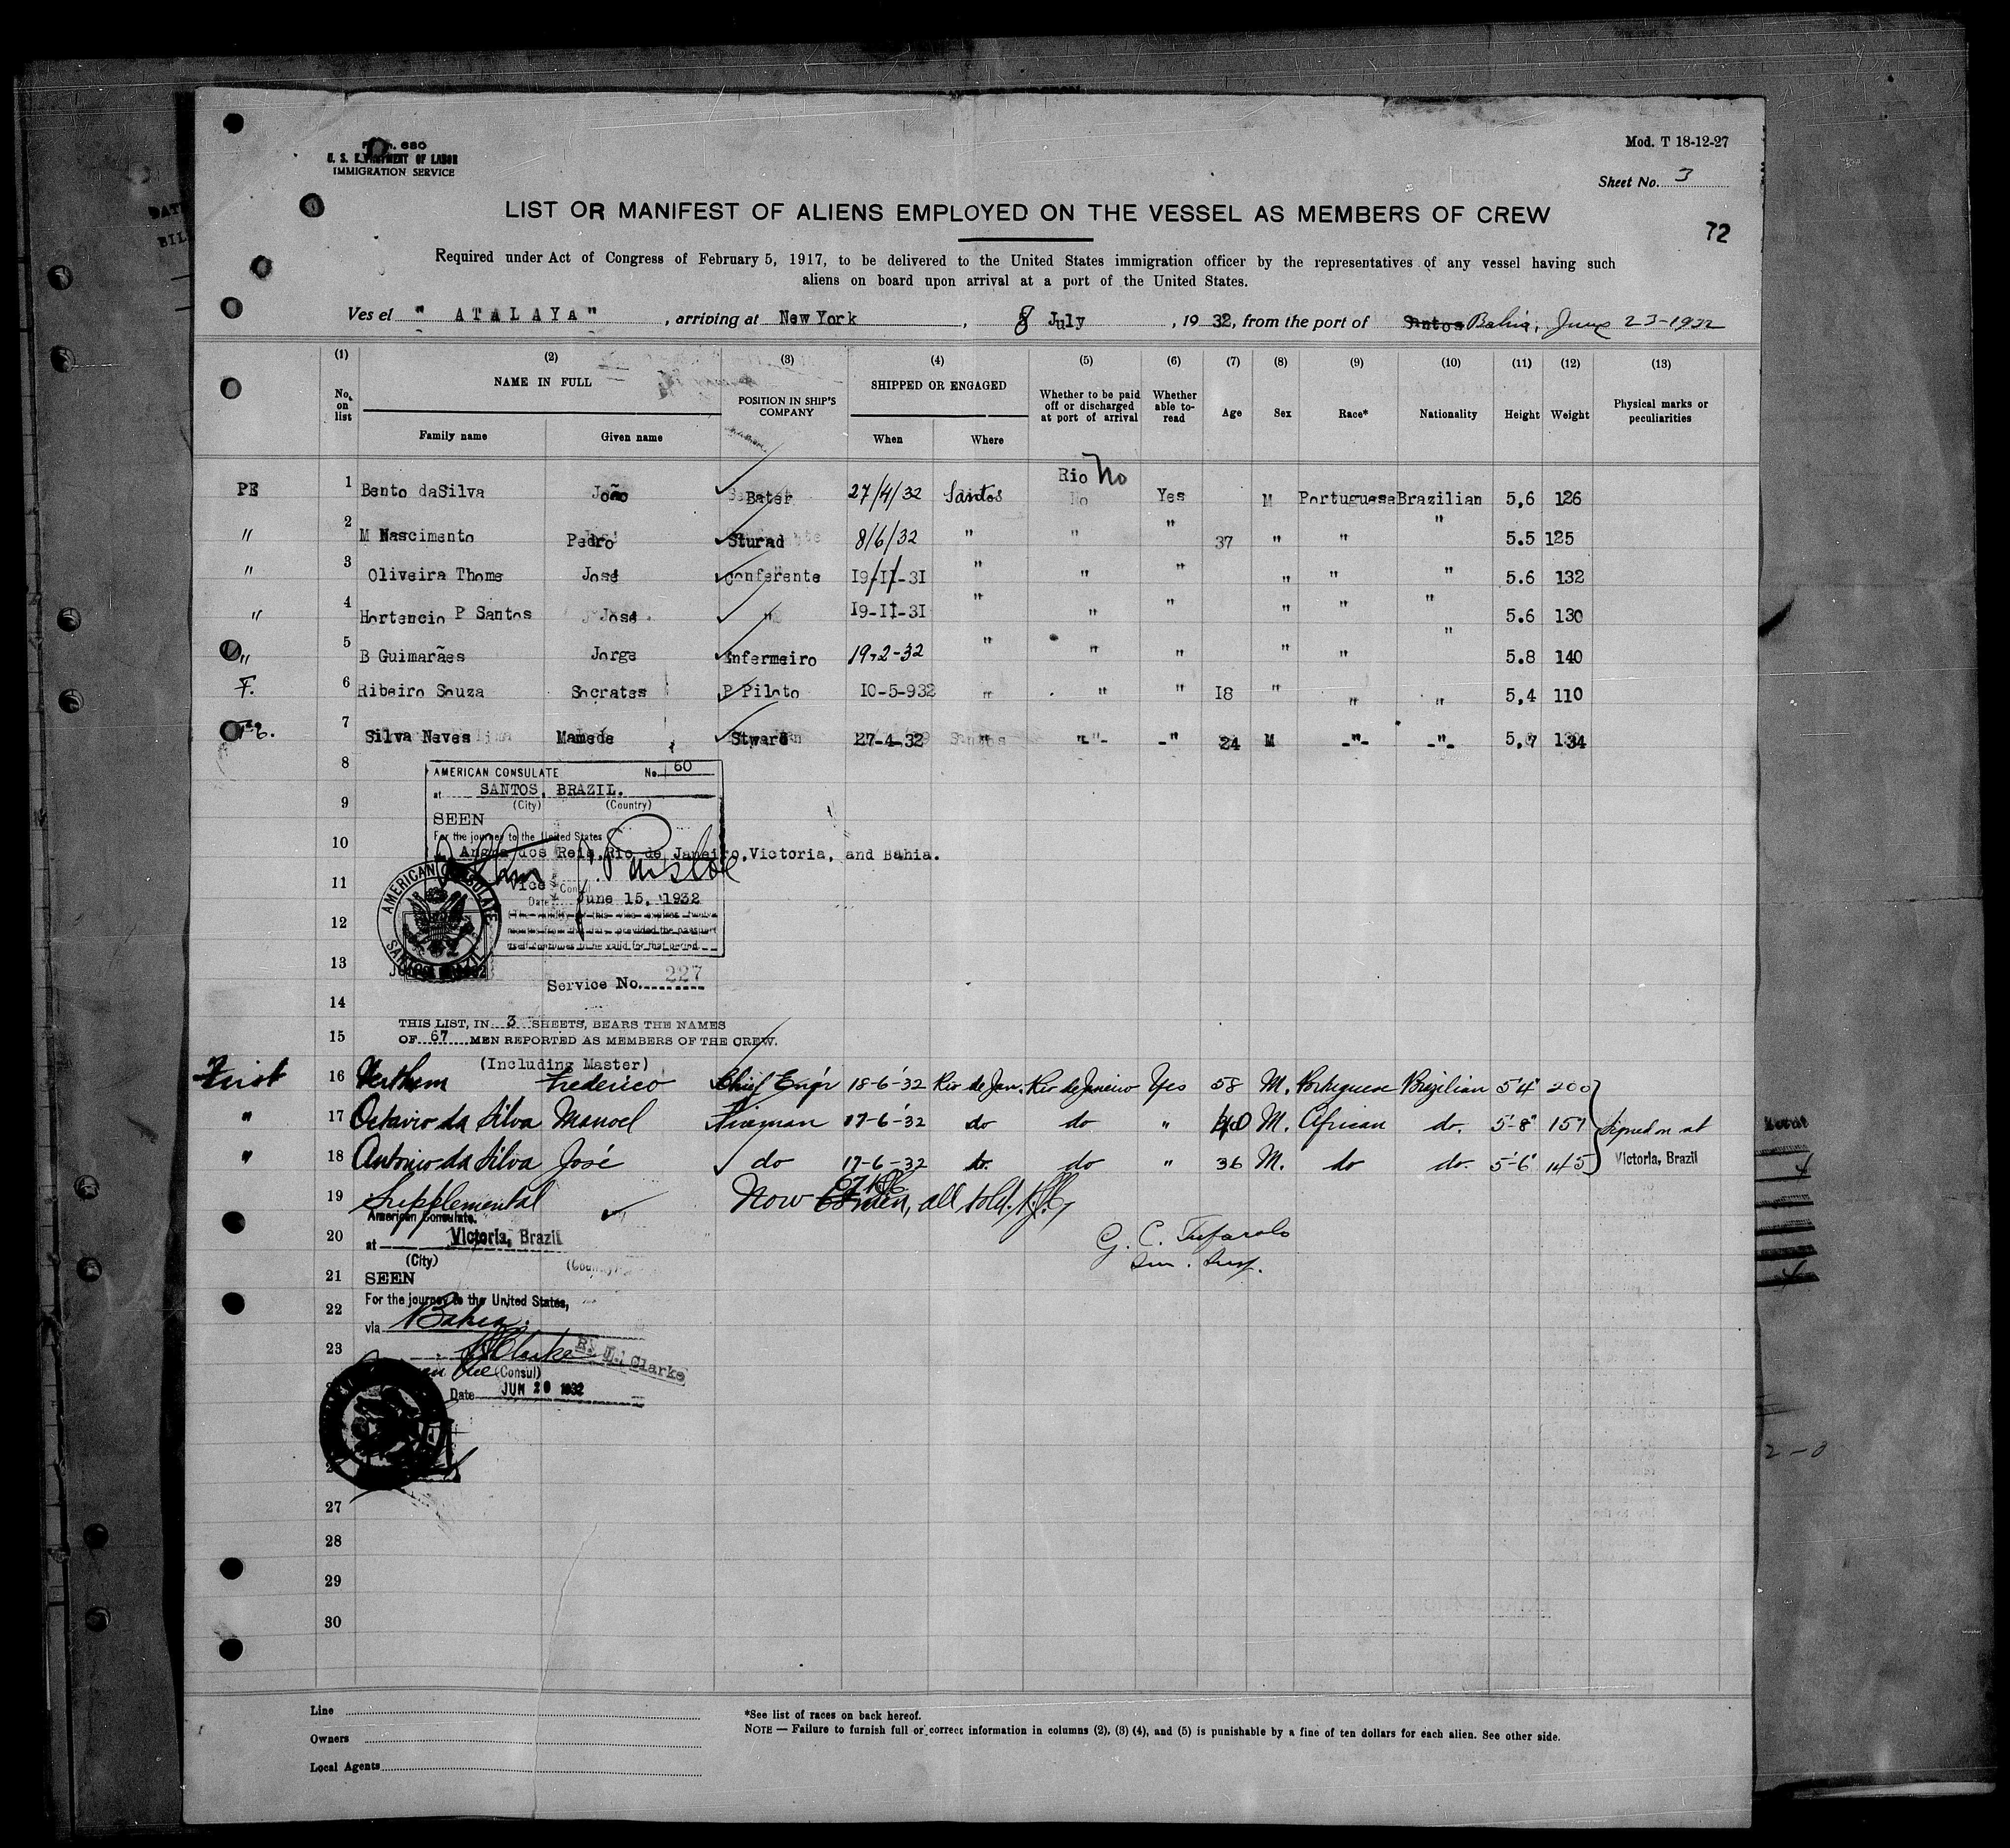 Form 680
U. S. DEPARTMENT OF LABOR
IMMIGRATION SERVICE
Mod. T 18-12-27
Sheet No. 3
LIST OR MANIFEST OF ALIENS EMPLOYED ON THE VESSEL AS MEMBERS OF CREW
72
Required under Act of Congress of February 5, 1917, to be delivered to the United States immigration officer by the representatives of any vessel having such
aliens on board upon arrival at a port of the United States.
Ves el " ATALAYA" , arriving at New York , 8 July , 19 32, from the port of Santos Bahia, June 23-1932
(1) (2) (3) (4) (5) (6) (7) (8) (9) (10) (11) (12) (13)
No. on list NAME IN FULL Family name Given name POSITION IN SHIP'S COMPANY SHIPPED OR ENGAGED When Where Whether to be paid off or discharged at port of arrival Whether able to- read Age Sex Race* Nationality Height Weight Physical marks or peculiarities
Rio No
PE 1 Bento daSilva João Bater 27/4/32 Santos No Yes M Portuguese Brazilian 5,6 126
" 2 M Nascimento Pedro Sturad 8/6/32 " " " 37 " " " 5.5 125
" 3 Oliveira Thome José conferente 19-11-31 " " " " " " 5.6 132
" 4 Hortencio P Santos José " 19-11-31 " " " " " " 5.6 130
" 5 B Guimarães Jorge Enfermeiro 19-2-32 " " " " " " 5.8 140
F. 6 Ribeiro Souza Socrates P Piloto 10-5-932 " " " 18 " " " 5,4 110
7 Silva Neves Mamede Stward 27-4-32 " -"- -" 24 M -"- -"- 5,7 134
8
AMERICAN CONSULATE No. 60
at SANTOS, BRAZIL.
9
(City) (Country)
SEEN
For the journey to the United States
10
Angra dos Reis, Rio de Janeiro, Victoria, and Bahia.
11
Vice Consul
Date June 15, 1932
AMERICAN CONSULATE
SANTOS BRAZIL
12
13
Service No. 227
14
THIS LIST, IN 3 SHEETS, BEARS THE NAMES
15
OF 67 MEN REPORTED AS MEMBERS OF THE CREW.
(Including Master)
First 16 Frederico Chief Engr 18-6-'32 Rio de Jan. Rio de Janeiro Yes 58 M. Portuguese Brazilian 5'4" 200
" 17 Octavio da Silva Manoel Fireman 17-6-'32 do do " 40 M. African do. 5'-8" 157 Signed on at
" 18 Antonio da Silva José do 17-6-32 do. do " 36 M. do do. 5'-6" 145 Victoria, Brazil
19 Supplemental Now 67 men, all told.
American Consulate.
20
at Victoria, Brazil
G. C. Tufarolo
(City) (Country)
Imm. Insp.
21 SEEN
For the journey to the United States,
22
via Bahia.
23
Clarke R. L. Clarke
Vice (Consul)
Date JUN 20 1932
27
28
29
30
Line
Owners
Local Agents
*See list of races on back hereof.
NOTE — Failure to furnish full or correct information in columns (2), (3) (4), and (5) is punishable by a fine of ten dollars for each alien. See other side.